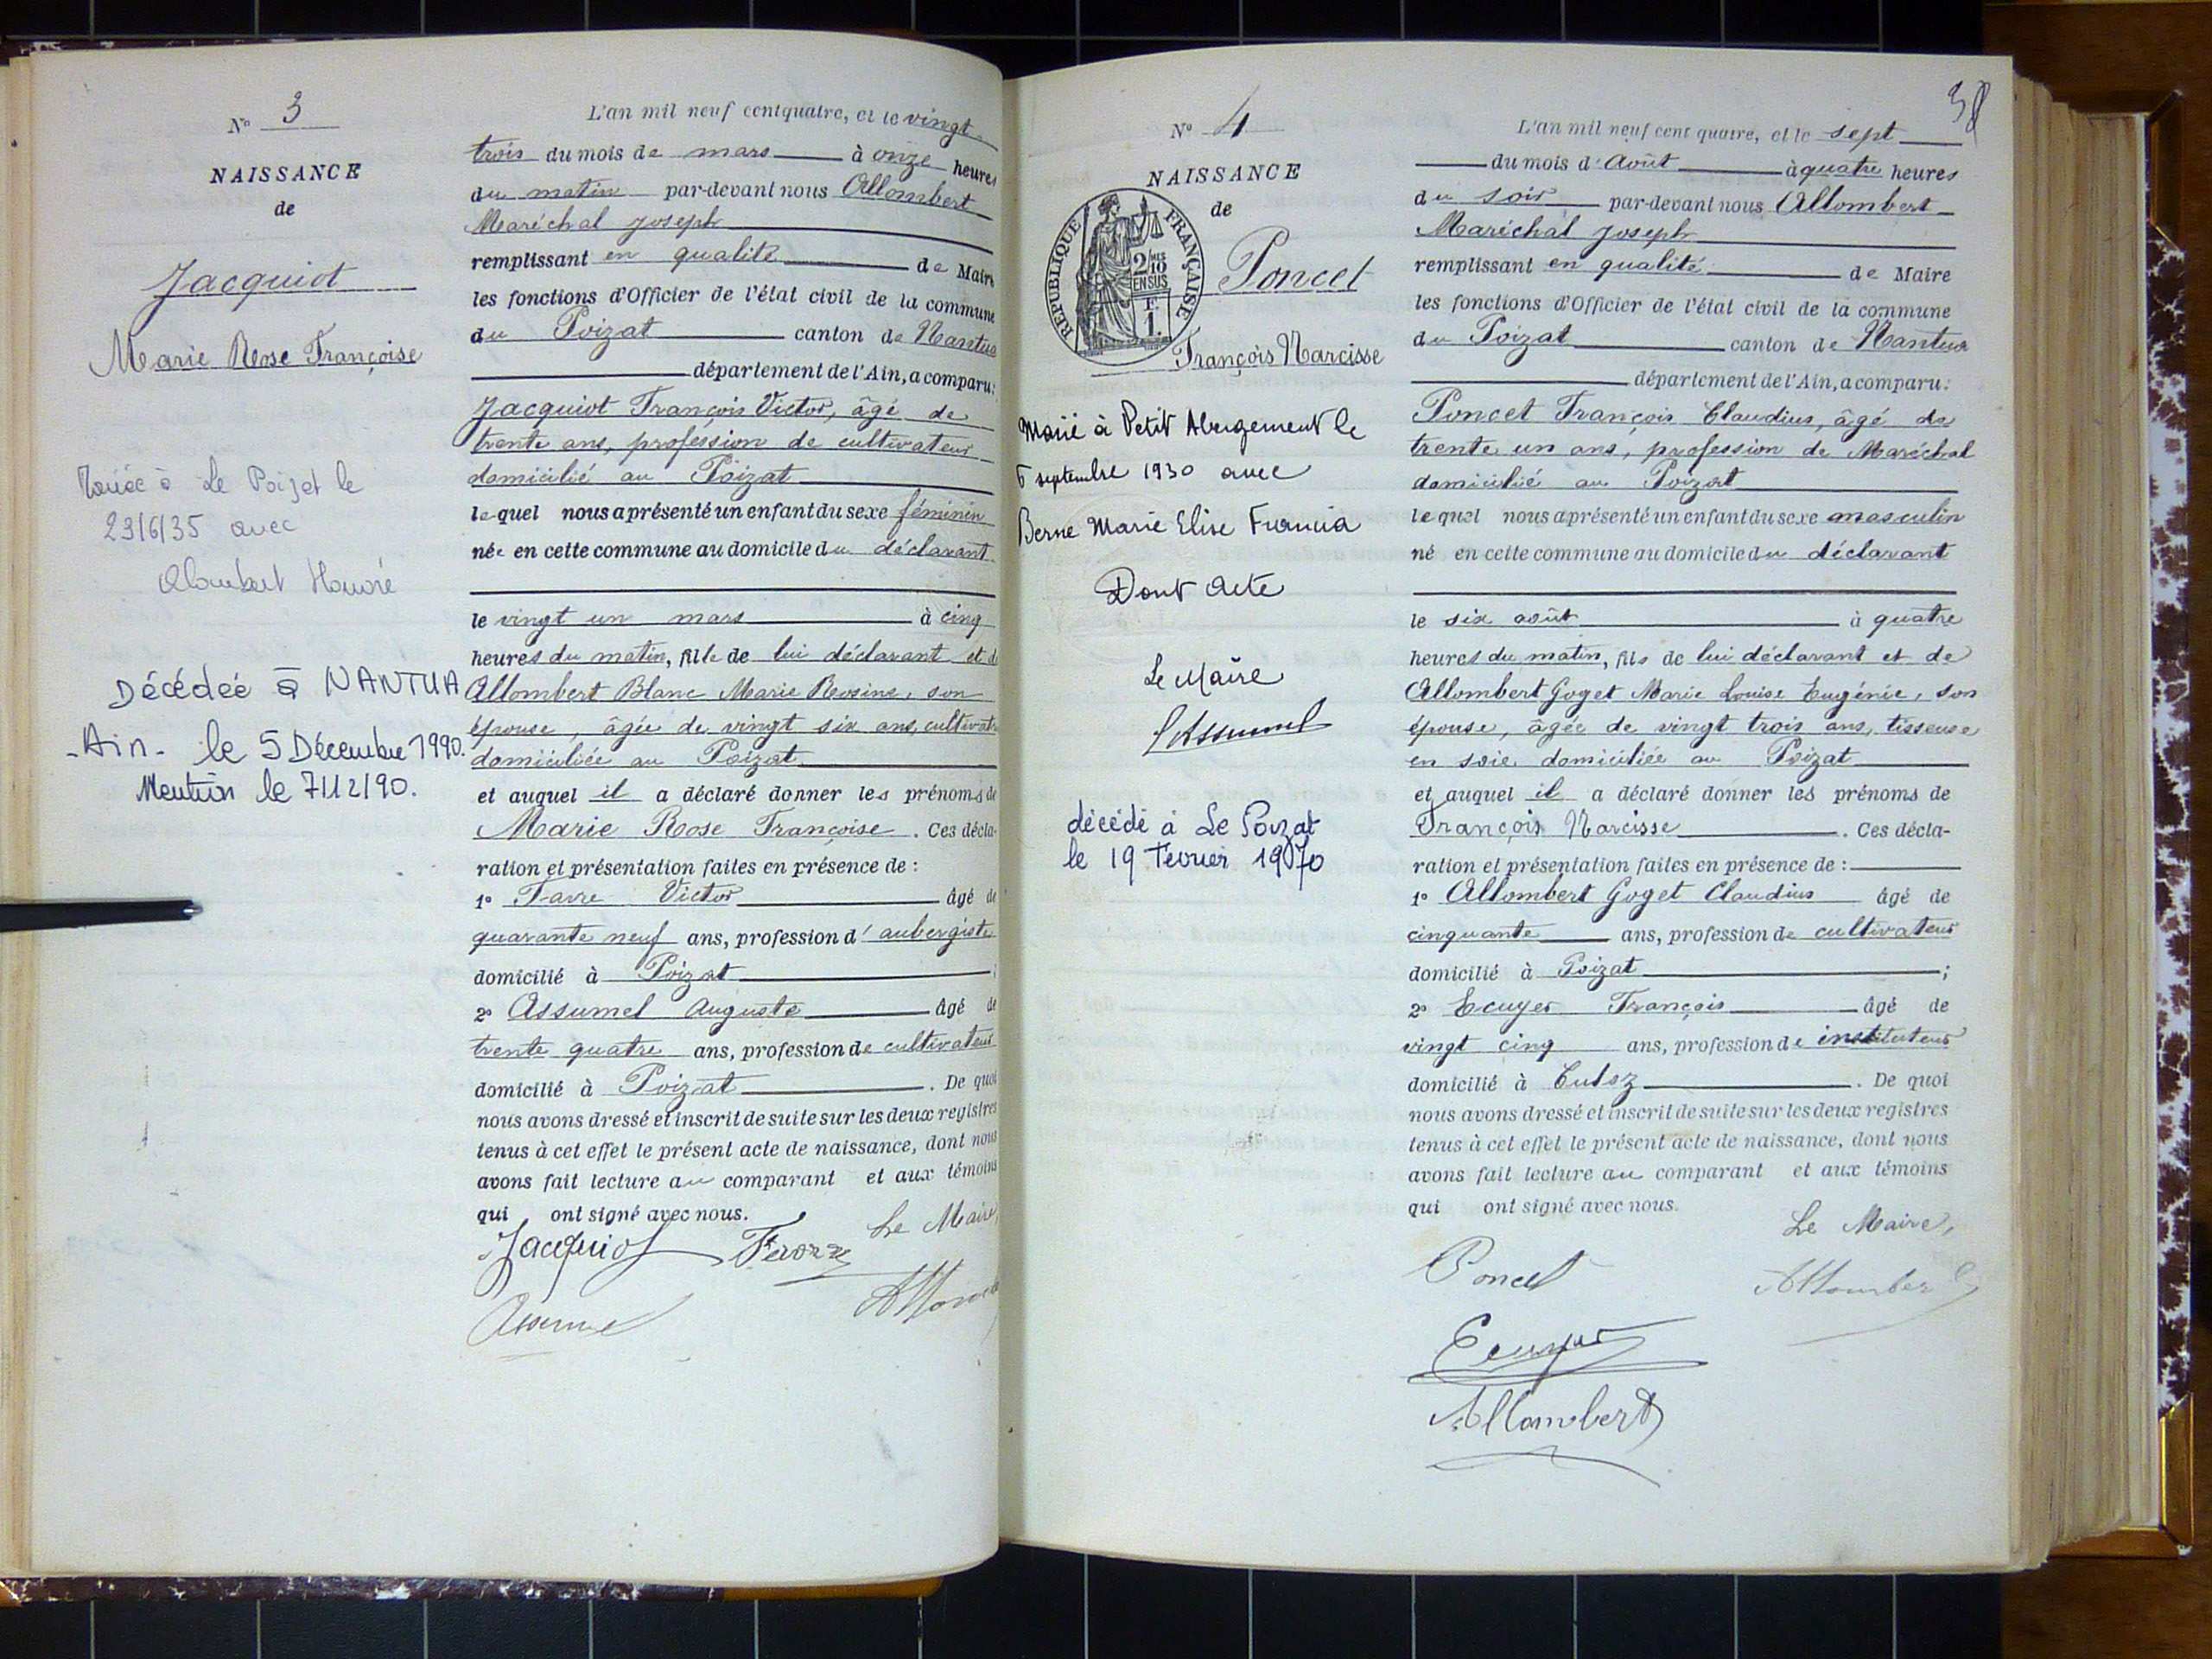 N° 3
NAISSANCE
de
Jacquiot
Marie Rose Françoise
Mariée à Le Poizat le
23/6/35 avec
Alombert Honoré
Décédée à NANTUA
-Ain- le 5 Décembre 1990.
Mention le 7/12/90.
L'an mil neuf centquatre, et le vingt
trois du mois de mars à onze heures
du matin par-devant nous Allombert
Maréchal Joseph
remplissant en qualité de Maire
les fonctions d'Officier de l'état civil de la commune
du Poizat canton de Nantua
département de l'Ain, a comparu:
Jacquiot François Victor, âgé de
trente ans, profession de cultivateur
domicilié au Poizat
lequel nous a présenté un enfant du sexe féminin
née en cette commune au domicile du déclarant
le vingt un mars à cinq
heures du matin, fille de lui déclarant et de
Allombert Blanc Marie Rosine, son
épouse, âgée de vingt six ans, cultivatr
domiciliée au Poizat
et auquel il a déclaré donner les prénoms de
Marie Rose Françoise. Ces décla-
ration et présentation faites en présence de :
1° Favre Victor âgé de
quarante neuf ans, profession d'aubergiste
domicilié à Poizat ;
2° Assumel Auguste âgé de
trente quatre ans, profession de cultivateur
domicilié à Poizat. De quoi
nous avons dressé et inscrit de suite sur les deux registres
tenus à cet effet le présent acte de naissance, dont nous
avons fait lecture au comparant et aux témoins
qui ont signé avec nous.
Le Maire,
Jacquiot
Assumel
38
N° 4
NAISSANCE
de
RÉPUBLIQUE FRANÇAISE
2/10
EN SUS
F.
1.
Poncet
François Narcisse
Marié à Petit Abergement le
6 septembre 1930 avec
Berne Marie Elise Francia
Dont acte
Le Maire
Assumel
décédé à Le Poizat
le 19 février 1970
L'an mil neuf cent quatre, et le sept
du mois d'Août à quatre heures
du soir par-devant nous Allombert
Maréchal Joseph
remplissant en qualité de Maire
les fonctions d'Officier de l'état civil de la commune
du Poizat canton de Nantua
département de l'Ain, a comparu:
Poncet François Claudius, âgé de
trente un ans, profession de Maréchal
domicilié au Poizat
lequel nous a présenté un enfant du sexe masculin
né en cette commune au domicile du déclarant
le six août à quatre
heures du matin, fils de lui déclarant et de
Allombert Goget Marie Louise Eugénie, son
épouse, âgée de vingt trois ans, tisseuse
en soie domiciliée au Poizat
et auquel il a déclaré donner les prénoms de
François Narcisse. Ces décla-
ration et présentation faites en présence de :
1° Allombert Goget Claudius âgé de
cinquante ans, profession de cultivateur
domicilié à Poizat ;
2° Ecuyer François âgé de
vingt cinq ans, profession de instituteur
domicilié à Culoz. De quoi
nous avons dressé et inscrit de suite sur les deux registres
tenus à cet effet le présent acte de naissance, dont nous
avons fait lecture au comparant et aux témoins
qui ont signé avec nous.
Le Maire,
Poncet
Allombert
Ecuyer
Allombert